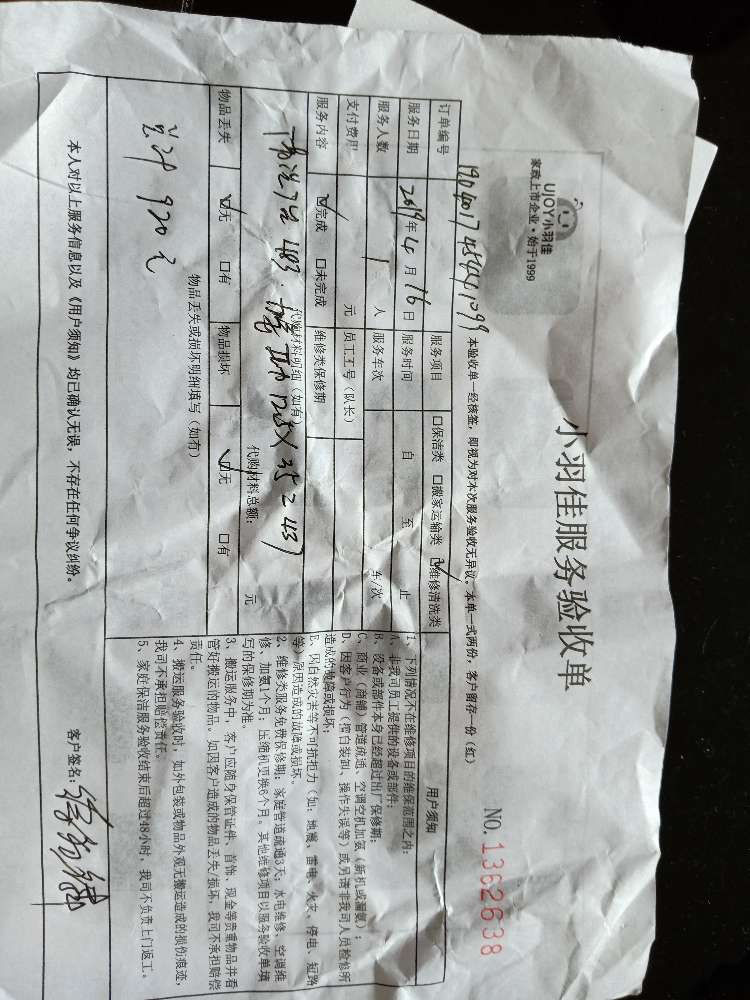 UJOY小羽佳
家政上市企业·始于1999
小羽佳服务验收单
NO.1362638
本验收单一经核签，即视为对本次服务验收无异议。本单一式两份，客户留存一份（红）
订单编号 服务项目 □保洁类 □搬家运输类 ☑维修清洗类
服务日期 2019年4月16日 服务时间 自 至 止
服务人数 1人 服务车次 车/次
支付费用 元 员工工号（队长）
服务内容 ☑完成 □未完成 维修类保修期
代购材料明细（如有）
483
35=437
代购材料总额： 元
物品丢失 ☑无 □有 物品损坏 ☑无 □有
物品丢失或损坏明细填写（如有）
920元
用户须知
1、下列情况不在维修项目的维保范围之内：
A、非我司员工提供的设备或部件；
B、设备或部件本身已经超过出厂保修期；
C、商业（商铺）管道疏通、空调空机加氨（新机或漏氨）；
D、因客户行为（擅自装卸、操作失误等）或另请非我司人员检修所
造成的故障或损坏；
E、因自然灾害等不可抗拒力（如：地震、雷电、火灾、停电、短路
等）原因造成的故障或损坏。
2、维修类服务免费保修期：家庭管道疏通3天；水电维修、空调维
修、加氨1个月；压缩机更换6个月。其他维修项目以服务验收单填
写的保修期为准。
3、搬运服务中，客户应随身保管证件、首饰、现金等贵重物品并看
管好搬运的物品。如因客户造成的物品丢失/损坏，我司不承担赔偿
责任。
4、搬运服务验收时，如外包装或物品外观无搬运造成的损伤痕迹，
我司不承担赔偿责任。
5、家庭保洁服务验收结束后超过48小时，我司不负责上门返工。
本人对以上服务信息以及《用户须知》均已确认无误，不存在任何争议纠纷。
客户签名：